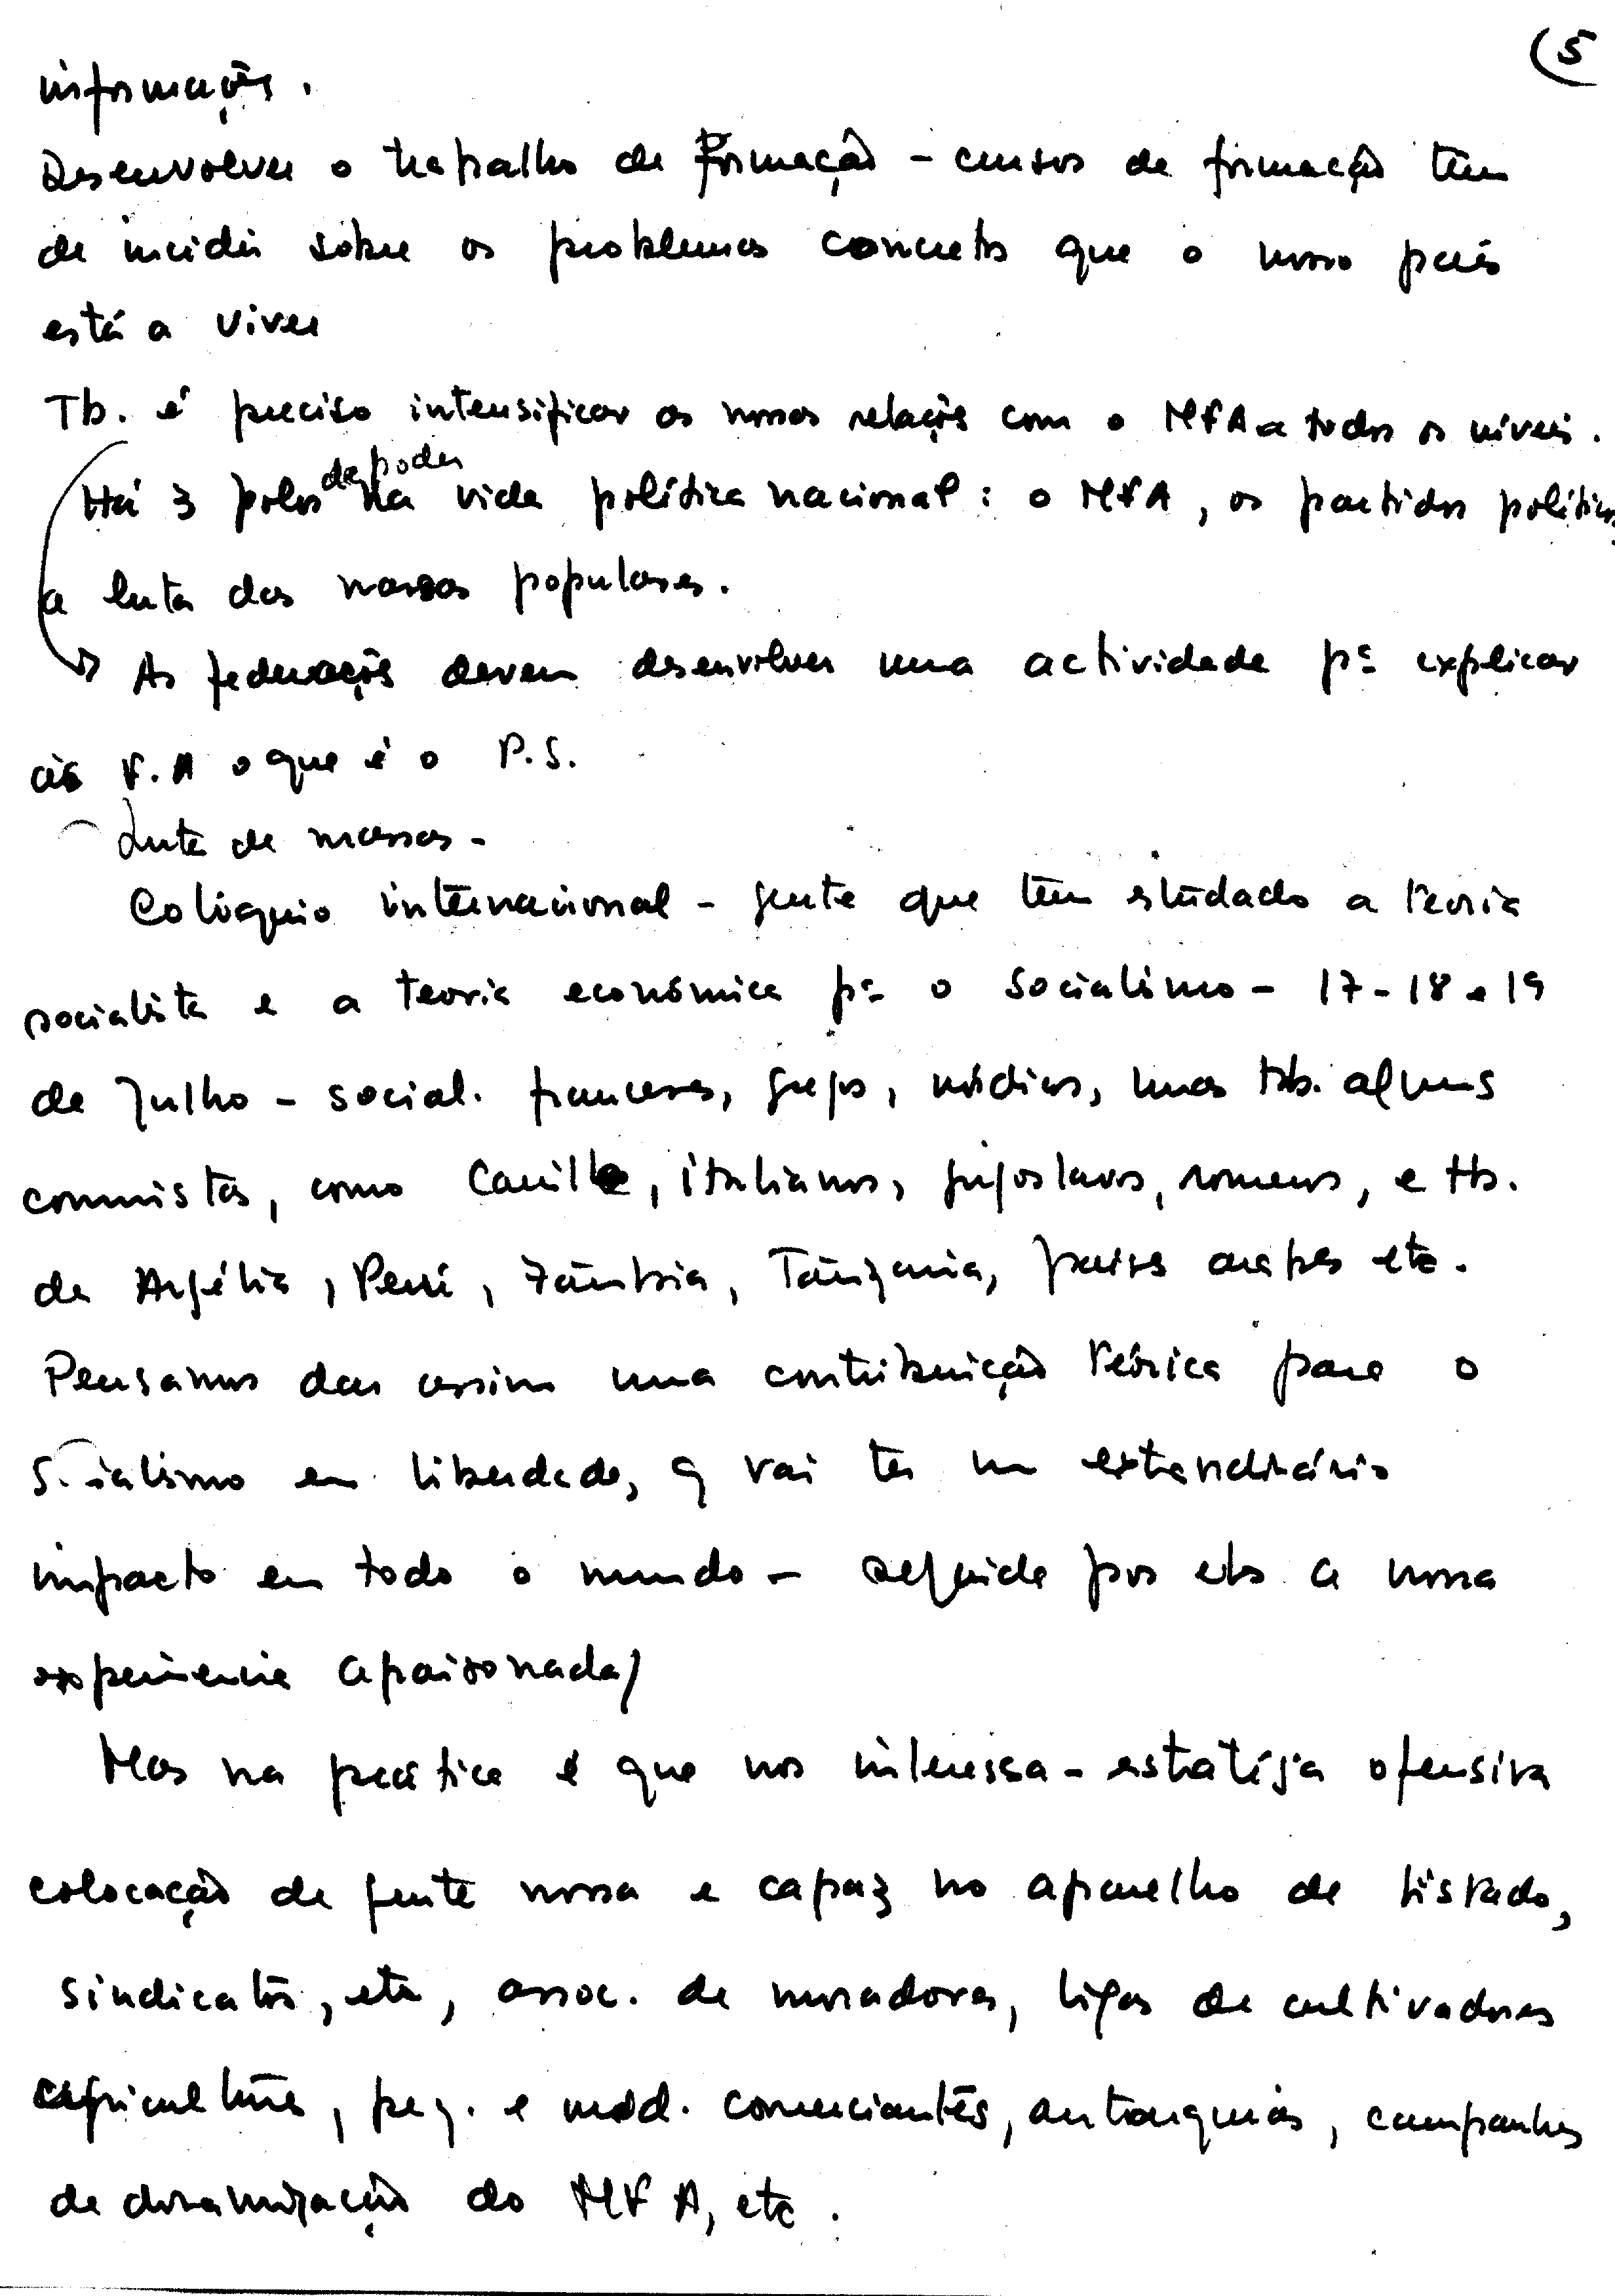 (5
informações.
Desenvolver o trabalho de Formação - cursos de formação têm
de incidir sobre os problemas concretos que o nosso país
está a viver
Tb. é preciso intensificar as nossas relações com o MFA a todos os níveis.
Há 3 polos de poder na vida política nacional: o MFA, os partidos políticos,
a luta das massas populares.
As federações devem desenvolver uma actividade pª explicar
às F.A o que é o P.S.
Luta de massas -
Colóquio internacional - gente que tem estudado a teoria
socialista e a teoria económica pª o socialismo - 17-18 e 19
de Julho - social. franceses, gregos, nórdicos, mas tb. alguns
comunistas, como Carrillo, italianos, jugoslavos, romenos, e tb.
da Argélia, Perú, Zâmbia, Tanzania, países árabes etc.
Pensamos dar assim uma contribuição teórica para o
Socialismo em liberdade, q vai ter um extraordinário
impacto em todo o mundo - seguida por eles a nossa
experiencia apaixonada/
Mas na prática é que nos interessa - estratégia ofensiva
colocação de gente nossa e capaz no aparelho de Estado,
sindicatos, etc, assoc. de moradores, ligas de cultivadores
agricultura, peq. e méd. comerciantes, autarquias, campanhas
de dinamização do MFA, etc.